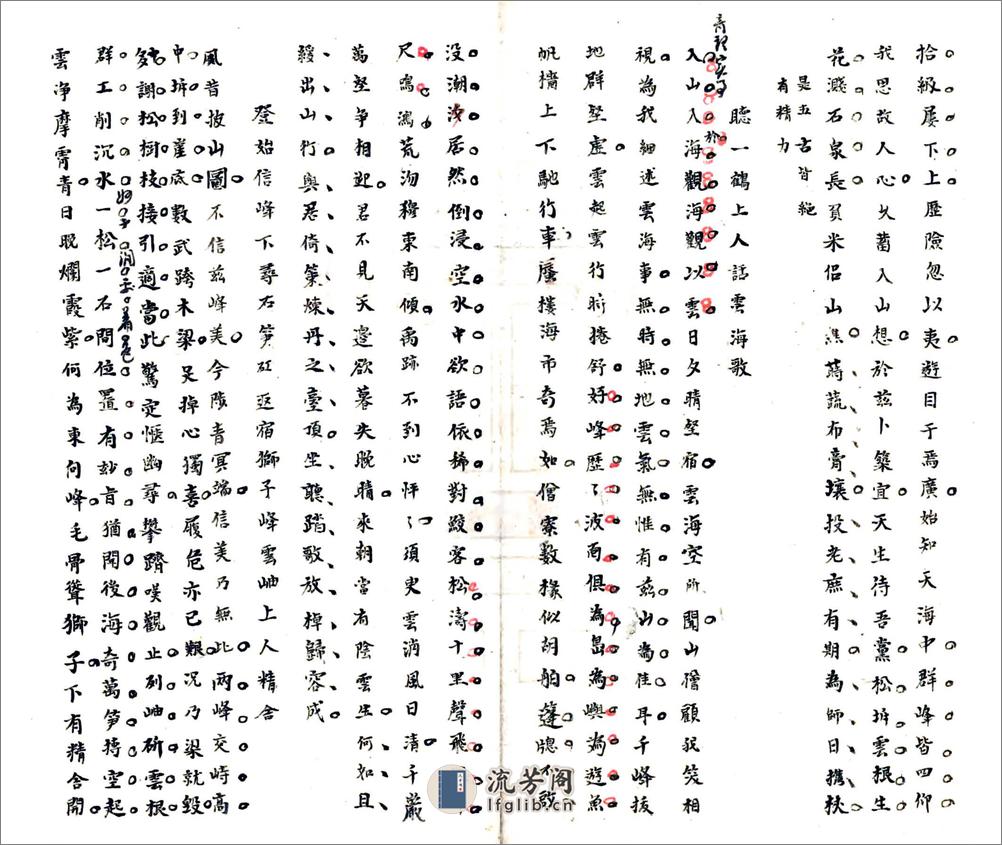 拾級屢下上歷險忽以夷遊目于焉廣始知天海中群峰皆四仰
我思故人心久蓄入山想於茲卜築宜天生待吾黨松拆雲根生
花濺石泉長負米侶山樵蒔蔬布膏壤投老庶有期為師日携杖
是五古皆絕
有精力
聽一鶴上人話雲海歌
入山入海觀海觀以雲日夕晴堅宿雲海空所聞山僧顧我笑相
視為我細述雲海事無時無地雲氣無惟有茲山為佳耳千峰拔
地群堅虛雲起雲行肵捲舒好峰歷了波面俱為島為嶼為遊魚
帆檣上下馳行車蜃樓海市奇焉如僧寮數椽似胡舶篷牕不啟
没潮汐居然倒浸空水中欲語依稀對蛟客松濤十里聲飛
尺鳴瀉荒沕穆東南傾禹跡不到心怦了須臾雲消風日清千巖
萬壑爭相迎君不見天邊欲暮失晚晴來朝當有陰雲生何如且
緩出山行與君倚築煉丹之臺頂坐聽踏歌放棹歸容成
登始信峰下尋石笋矼返宿獅子峰雲岫上人精舍
風昔披山圖不信茲峰美今陟青冥端信美乃無此兩峰交峙高
中拆到崖底數武跨木梁足掉心獨喜履危亦已艱况乃梁就毀
多謝松樹枝接引適當此驚定愜幽尋攀躋嘆觀止列岫斫雲根
群工削沉水一松一石間位置有妙旨猶聞後海奇萬笋摶空起
雲净摩霄青日晚爛霞紫何為東向峰毛骨聳獅子下有精舍開
流芳阁
lfglib.cn